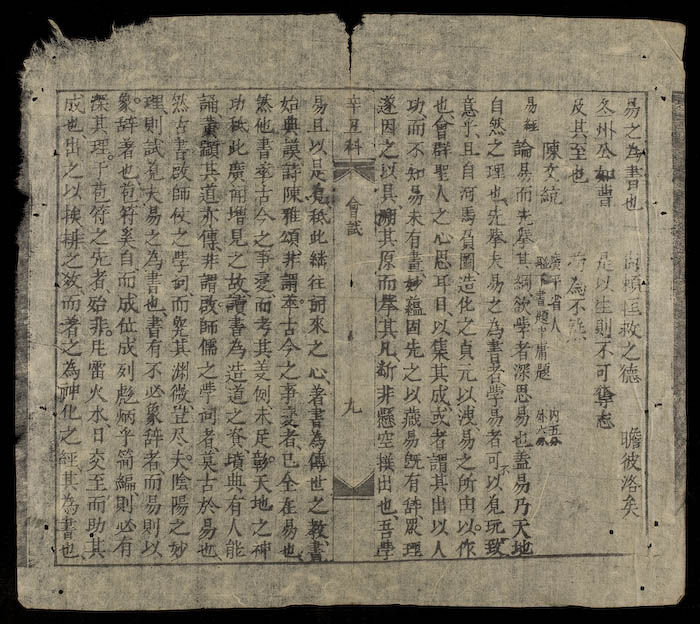 易之為書也　尚頼匡救之德　瞻彼洛矣
冬州公如曹　是以生則不可奪志
及其至也　為不
陳文統　廣平省人　書題中庸題　内五分　外六分
易經　論易而先舉其綱欲學者深思易也蓋易乃天地
自然之理也先舉夫易之為書者學易者可以見玩致
意乎且自河馬負圖造化之貞元以洩易之所由以作
也會群聖人之心思耳目以集其成或者謂其出以人
功而不知易未有畫妙蘊固先之以藏易既有辭眾理
遂因之以具溯其原而舉其凡斷非懸空撰出也吾學
辛丑科　會試　九
易且以是見秪此繼往詞來之心著書為傳世之教書
始典謨詩陳雅頌非謂萃古今之事變者已全在易也
然他書萃古今之事變而考其美側未足彰天地之神
功秪此廣詞增見之故讀書為造道之資墳典有人能
誦其道亦傳非謂啟師儒之學詞者莫古於易也
然古書啟師仗之學詞而窮其淵微豈尽夫陰陽之妙
理則試覓夫易之為書也書有不必象辭者而易則以
象辭著也苞符奚自而成位成列彪炳乎篇編則必有
深其理于苞符之先者始非凭雷火水日交至而助其
成也出之以挨排之效而著之為神化之經其為書也